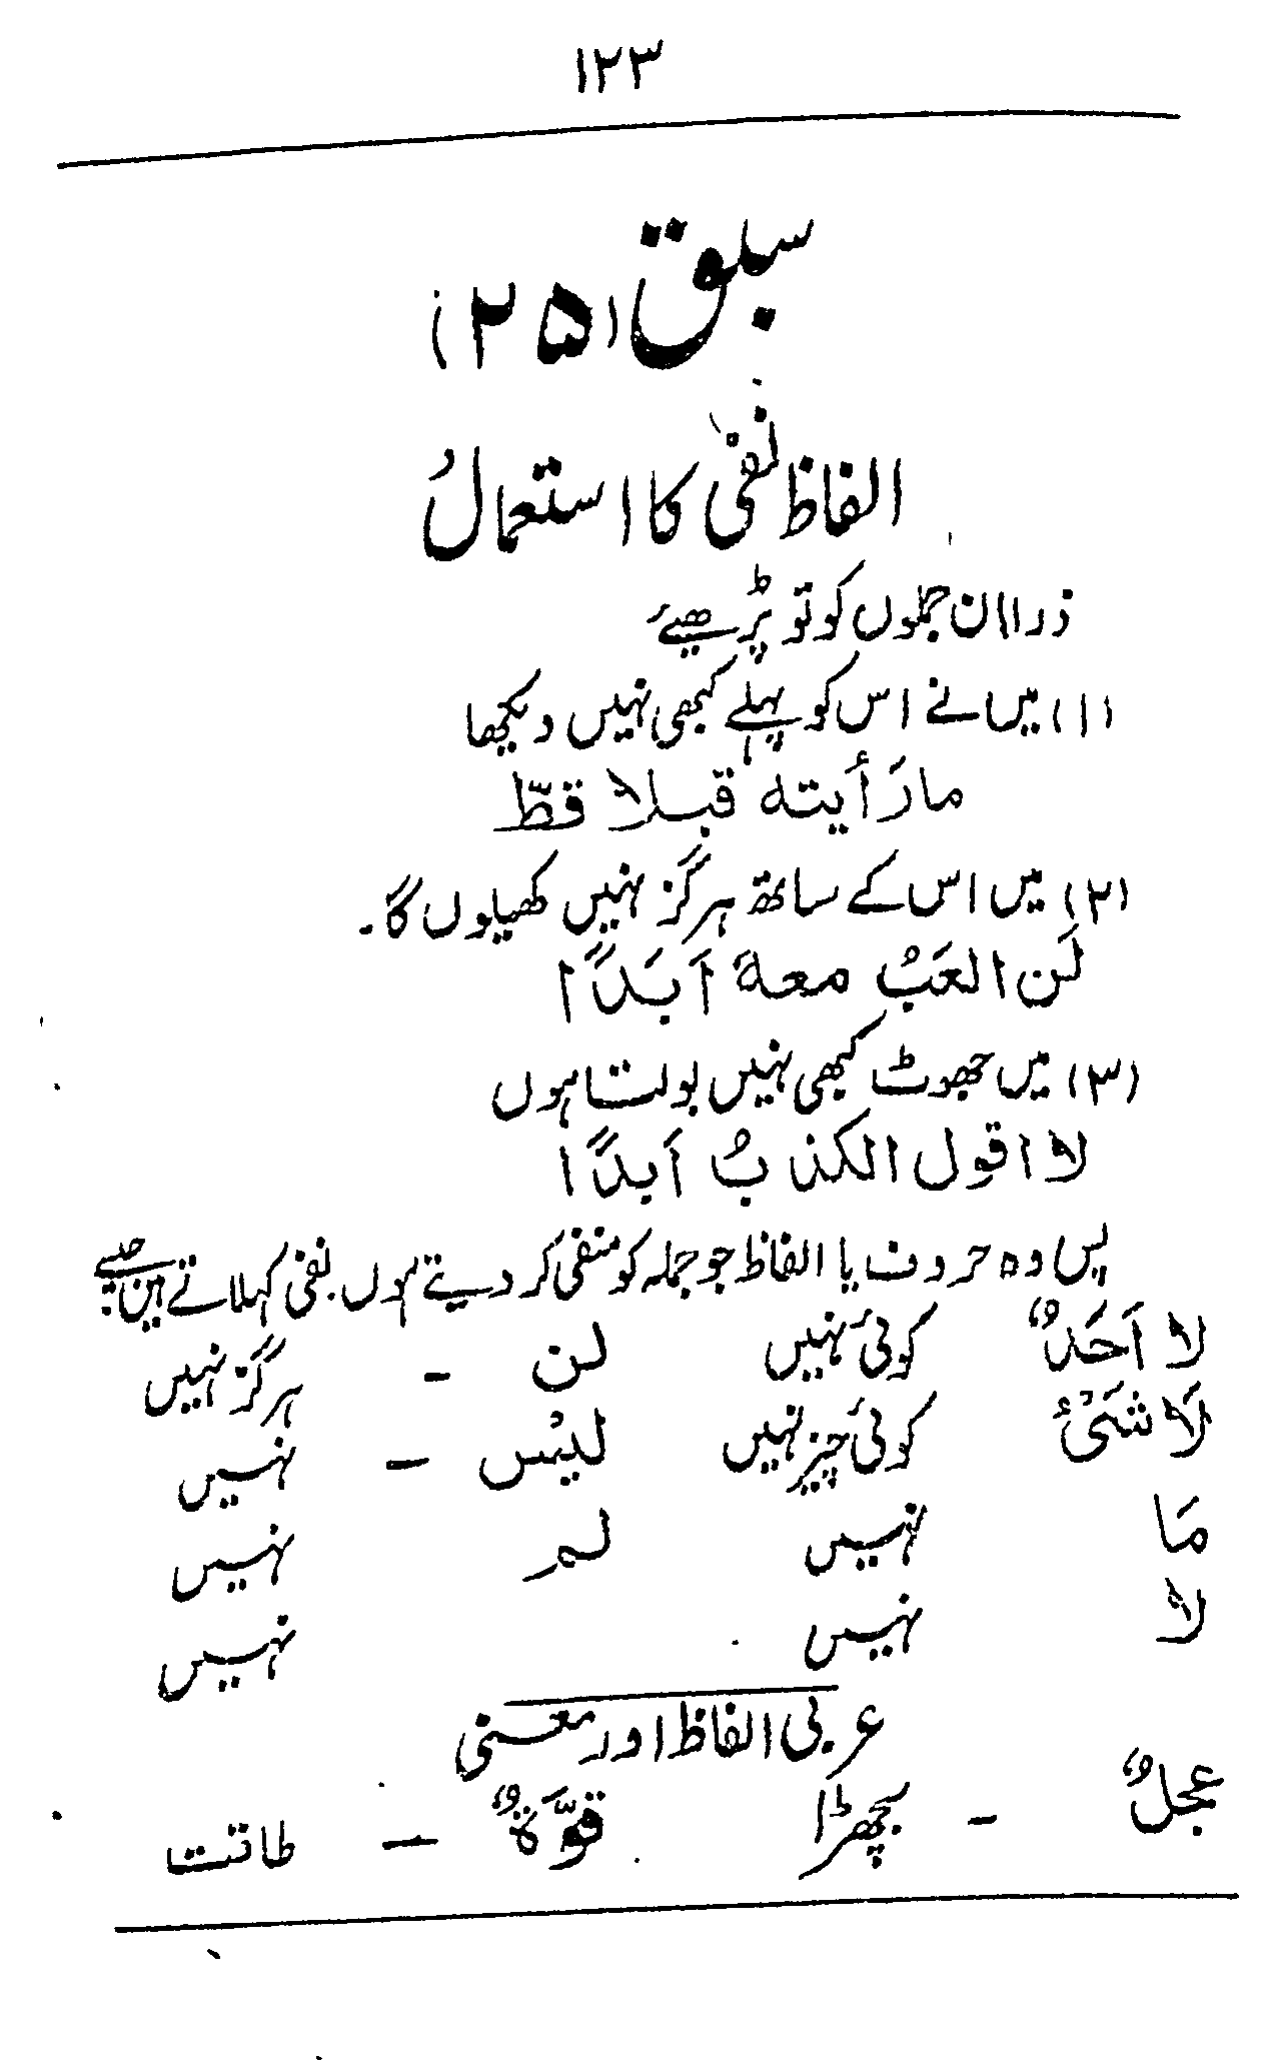 ۱۲۳
سبق (۲۵)
الفاظ نفی کا استعمال
ذرا ان جملوں کو تو پڑھیئے
(۱) میں نے اس کو پہلے کبھی نہیں دیکھا
مارَأیته قبلا قطّ
(۲) میں اس کے ساتھ ہرگز نہیں کھیلوں گا۔
لَن العَبُ معهَ اَبَدًا
(۳) میں جھوٹ کبھی نہیں بولتا ہوں
لا اقول الکذبُ اَبدًا
پس وہ حروف یا الفاظ جو جملہ کو منفی کر دیتے ہوں نفی کہلاتے ہیں جیسے:
لا اَحَدٌ کوئی نہیں لن - ہرگز نہیں
لَا شَیْءُ کوئی چیز نہیں لیْس - نہیں
مَا نہیں لم نہیں
لا نہیں نہیں
عربی الفاظ اور معنی
عجلٌ - بچھڑا قوَّةٌ - طاقت